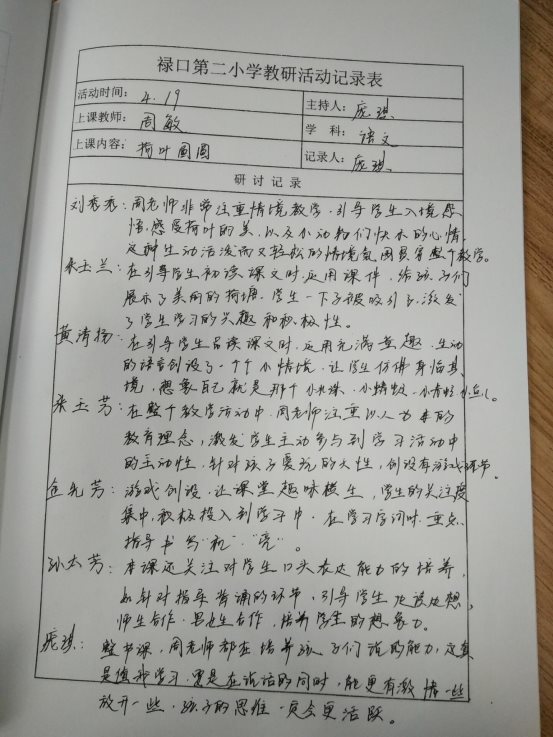 禄口第二小学教研活动记录表
活动时间: 4.19 主持人: 庞琪
上课教师: 周敏 学 科: 语文
上课内容: 荷叶圆圆 记录人: 庞琪
研 讨 记 录
刘秀秀: 周老师非常注重情境教学,引导学生入境感
悟,感受荷叶的美,以及小动物们快乐的心情,
这种生动活泼而又轻松的情境氛围贯穿整个教学。
朱玉兰: 在引导学生初读课文时,应用课件,给孩子们
展示了美丽的荷塘,学生一下子被吸引了,激发
了学生学习的兴趣和积极性。
黄清扬: 在引导学生品读课文时,运用充满童趣、生动
的语言创设了一个个小情境,让学生仿佛身临其
境,想象自己就是那个小水珠、小蜻蜓、小青蛙、小鱼儿。
朱玉芳: 在整个教学活动中,周老师注重以人为本的
教育理念,激发学生主动参与到学习活动中
的主动性,针对孩子爱玩的天性,创设有游戏环节。
芳: 游戏创设,让课堂趣味横生,学生的关注度
集中,积极投入到学习中,在学习字词时,重点
指导书写“机”、“亮”。
孙 芳: 本课还关注对学生口头表达能力的培养,
如针对指导背诵的环节,引导学生边读边想,
师生合作、合作,培养学生的想象力。
庞琪: 整节课,周老师都在培养孩子们说的能力,这真
是值得学习,要是在说话的同时,能更有激情一些
放开一些,孩子的思维一定会更活跃。